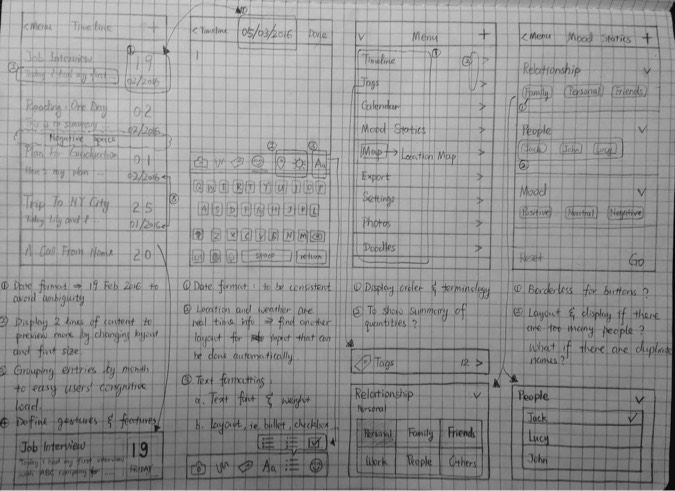 < Menu Timeline +
Job Interview 19
Today I had my first 02/2016
Reading : One Day 02
02/2016
Negative space
Plan It 01
How's my plan 02/2016
Trip To NY City 25
Today Lily and I 01/2016
A Call From Home 20
① Date format ⇒ 19 Feb 2016 to
avoid ambiguity
② Display 2 lines of content to
preview more by changing layout
and font size
③ Grouping entries by month
to easy users' congnitive
load
④ Define gestures & features
Job Interview 19
Today I had my first interview
with ABC company for FRIDAY
< Timeline 05/03/2016 Done
Aa
space return
① Date format : to be consistent
② Location and weather are
real time info ⇒ find another
layout for input that can
be done automatically
③ Text formatting :
a. Text font & weight
b. layout, ie. bullet, checkbox
Aa
Menu +
Timeline >
Tags >
Calendar >
Mood Statics >
Map → Location Map
Export >
Settings >
Photos >
Doodles >
① Display order & terminology
② To show summary of
quantities ?
Tags 12 >
Relationship
Personal
Personal Family Friends
Work People Others
< Menu Mood Statics +
Relationship
Family Personal Friends
People
Jack John Lucy
Mood
Positive Neutral Negative
Reset Go
① Borderless for buttons ?
② Layout & display if there
are too many people ?
What if there are duplicate
names ?
People
Jack
Lucy
John